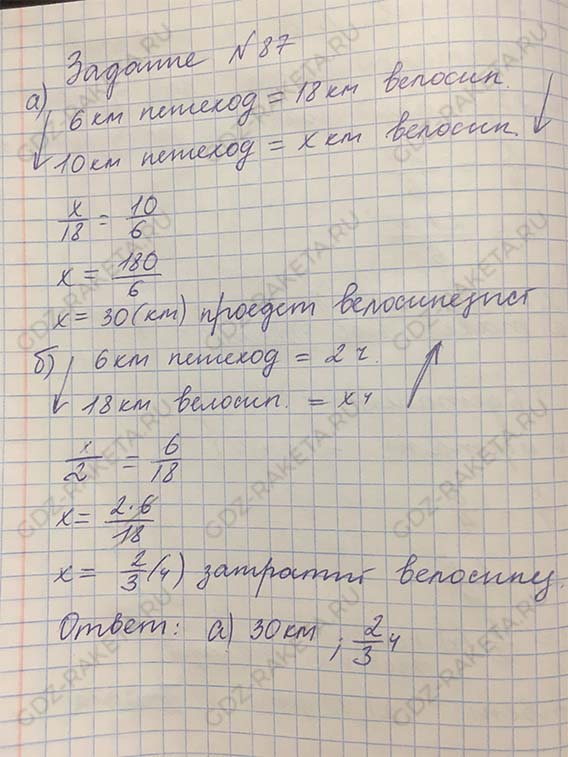 Задание №87
а) 6 км пешеход = 18 км велосип.
10 км пешеход = х км велосип.
х/18 = 10/6
х = 180/6
х = 30 (км) проедет велосипедист
б) 6 км пешеход = 2 ч.
18 км велосип. = х ч
х/2 = 6/18
х = 2·6/18
х = 2/3 (ч) затратит велосипед.
Ответ: а) 30 км ; 2/3 ч
GDZ-RAKETA.RU